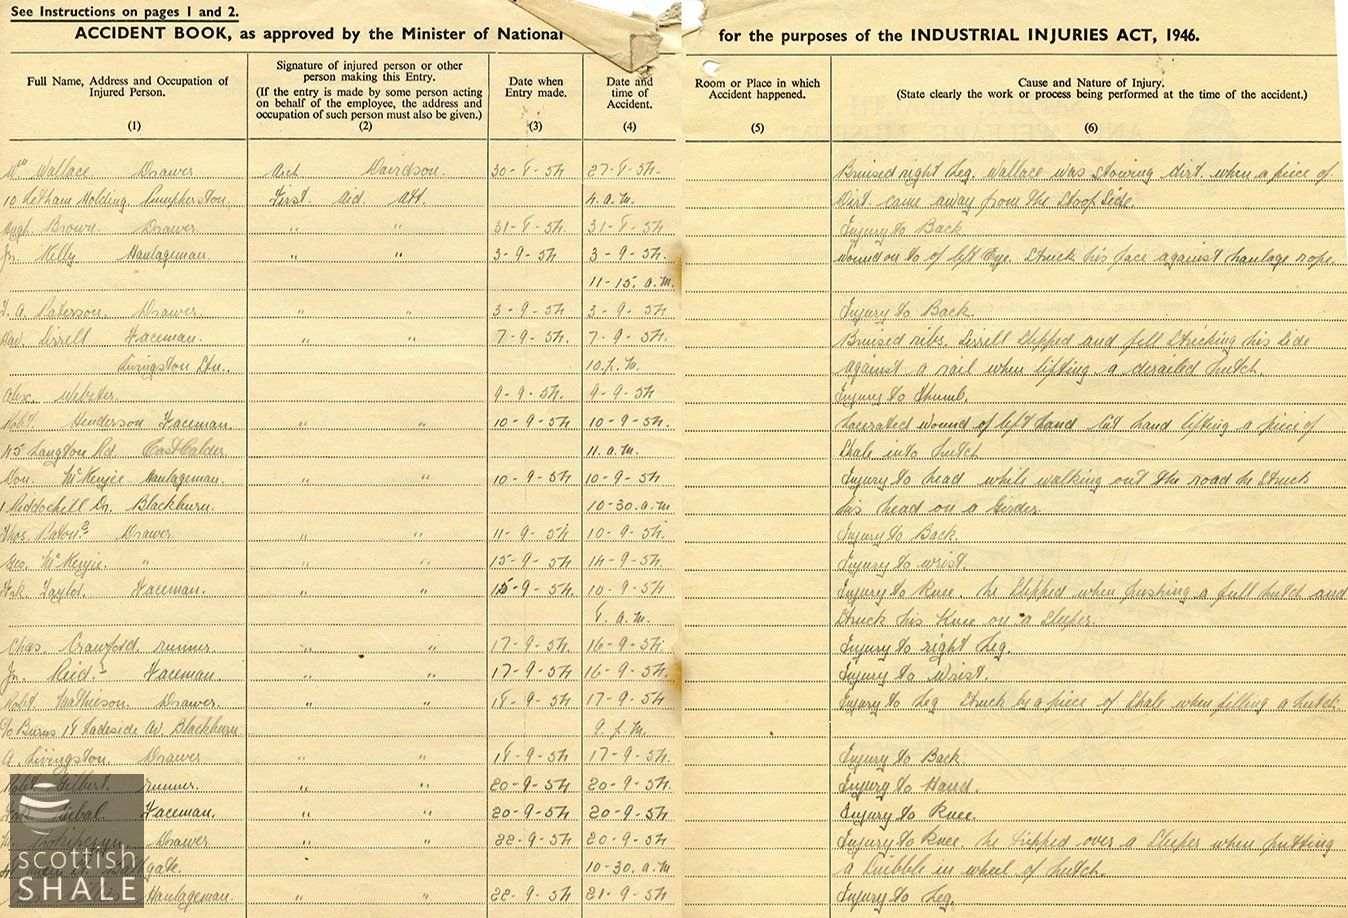 See Instructions on pages 1 and 2.
ACCIDENT BOOK, as approved by the Minister of National for the purposes of the INDUSTRIAL INJURIES ACT, 1946.
Full Name, Address and Occupation of Injured Person. (1)
Signature of injured person or other person making this Entry. (If the entry is made by some person acting on behalf of the employee, the address and occupation of such person must also be given.) (2)
Date when Entry made. (3)
Date and time of Accident. (4)
Room or Place in which Accident happened. (5)
Cause and Nature of Injury. (State clearly the work or process being performed at the time of the accident.) (6)
Wm Wallace Drawer Arch Davidson 30-8-54 27-8-54. Bruised right leg. Wallace was stowing dirt when a piece of
10 Letham Holding Pumpherston. First Aid Att. 4. a.m. Dirt came away from the Stoop Side
Hugh Brown. Drawer " " 31-8-54 31-8-54 Injury to Back
Jn. Kelly Haulageman. " " 3-9-54 3-9-54. Wound on to of left Eye. Struck his face against haulage rope.
11-15. a.m.
Paterson. Drawer. " " 3-9-54 3-9-54 Injury to Back.
Dav. Faceman. " " 7-9-54. 7-9-54. Bruised ribs. slipped and fell striking his side
Livingston Stn. 10 p.m. against a rail when lifting a derailed hutch.
Alex. Webster. 9-9-54. 9-9-54 Injury to thumb.
Robt. Henderson Faceman. " " 10-9-54 10-9-54. Lacerated wound of left hand Cut hand lifting a piece of
45 Langton Rd East Calder. 11. a.m. Shale into hutch
Don. McKenzie Haulageman. " " 10-9-54 10-9-54. Injury to head while walking out the road he Struck
1 Riddochill Dr. Blackburn. 10-30. a.m his head on a Girder.
Thos. Paton Drawer. " " 11-9-54 10-9-54. Injury to Back.
Geo. McKenzie. " " " 15-9-54. 14-9-54. Injury to wrist.
Taylor. Faceman. " " 15-9-54. 10-9-54 Injury to Knee. he slipped when pushing a full hutch and
8. a.m. Struck his Knee on a Sleeper.
Chas. Crawford runner. " " 17-9-54. 16-9-54. Injury to right leg.
Jn. Reid. Faceman. " " 17-9-54 16-9-54. Injury to Wrist.
Robt. Mathieson. Drawer. " " 18-9-54 17-9-54. Injury to leg Struck by a piece of Shale when filling a hutch
c/o Burns 18 Ladeside Av. Blackburn. 9. p.m.
A. Livingston. Drawer " " 18-9-54 17-9-54. Injury to Back.
Robt. Gilbert. runner. " " 20-9-54 20-9-54 Injury to Hand.
Faceman. " " 20-9-54 20-9-54 Injury to Knee.
Drawer " " 22-9-54 20-9-54 Injury to Knee. he tripped over a Sleeper when putting
10-30. a.m a in wheel of hutch.
Haulageman. " " 22-9-54 21-9-54 Injury to Leg.
scottish
SHALE